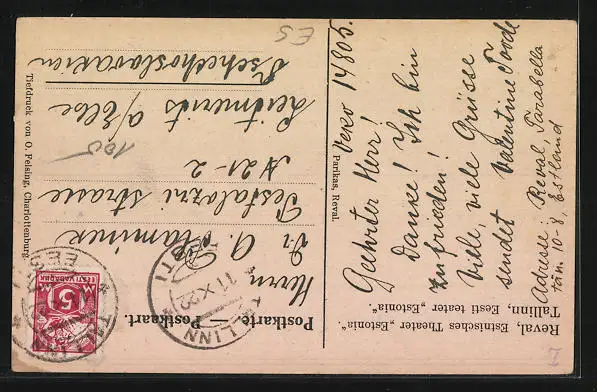 Reval, Estnisches Theater „Estonia“.
Tallinn, Eesti teater „Estonia“.
Postkarte. — Postkaart.
Parikas, Reval.
Tiefdruck von O. Felsing, Charlottenburg
Veko 14805.
Geehrter Herr!
Danke! Ich bin
zufrieden!
Viele, viele Grüsse
sendet Valentine Toode
Adresse: Reval, Parabella
tän. 10-8, Estland
Herrn
Dr A. de
Pestalozzi strasse
N 21-2
Leitmeritz a/Elbe
Tschechoslovakien
105
ES
TALLINN
EESTI
11.X.22
EESTI VABARIIK
5 M
TALLINN
EESTI